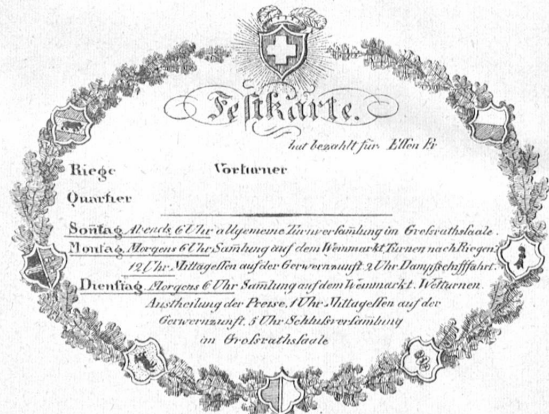 Festkarte.
hat bezahlt für Essen Fr
Riege Vorturner
Quartier
Sontag Abends 6 Uhr allgemeine Turnversamlung im Grossrathssaale.
Montag Morgens 6 Uhr Samlung auf dem Weinmarkt Turnen nach Riegen
12 Uhr Mittagessen auf der Gerwernzunft. 2 Uhr Dampfschifffahrt.
Dienstag Morgens 6 Uhr Samlung auf dem Weinmarkt. Wetturnen.
Austheilung der Preise. 1 Uhr Mittagessen auf der
Gerwernzunft. 5 Uhr Schlussversamlung
im Grossrathssaale